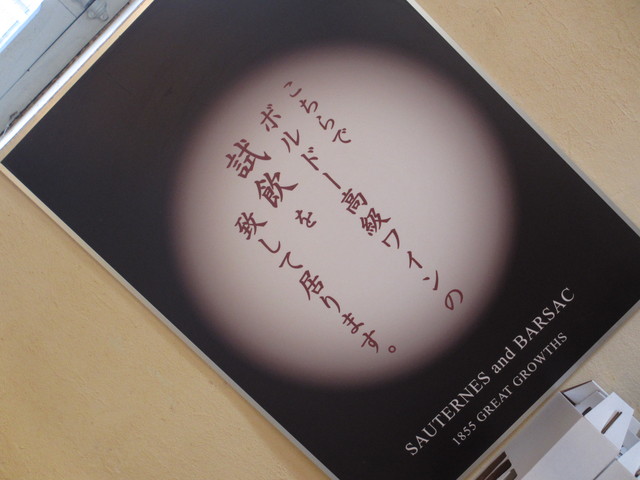 こちらで
ボルドー高級ワインの
試飲を
致して居ります。
SAUTERNES and BARSAC
1855 GREAT GROWTHS